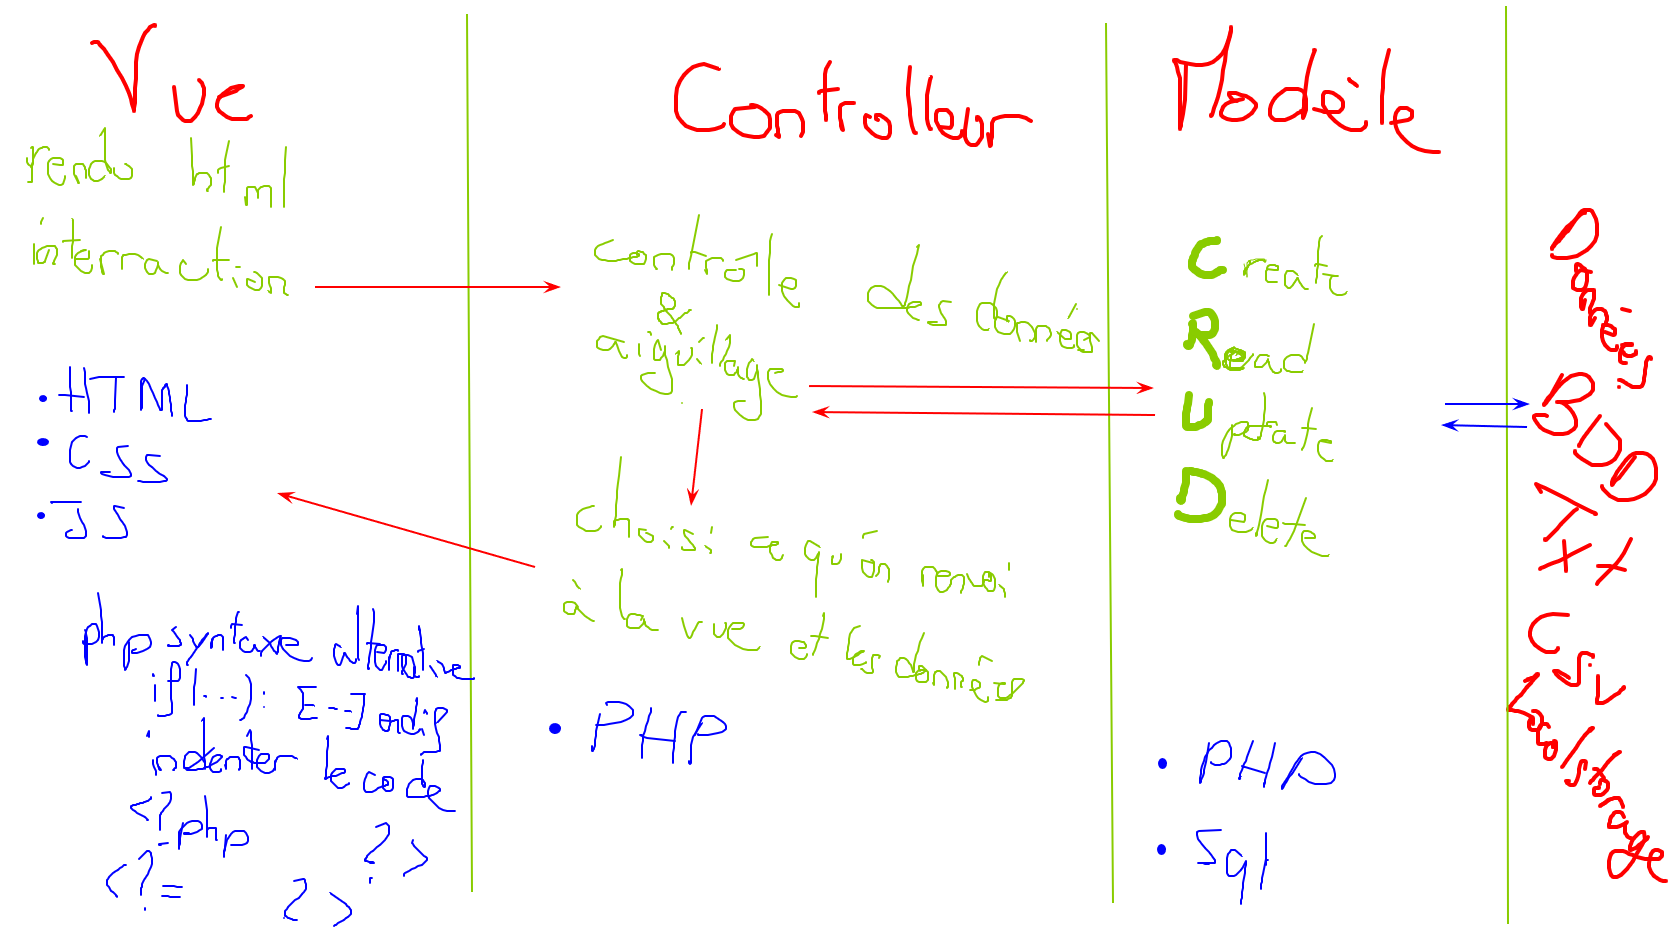 Vue
rendu html
interraction
• HTML
• CSS
• JS
php syntaxe alternative
if(...): [---] endif
indenter le code
<?php ?>
<?= ?>
Controlleur
contrôle des données
&
aiguillage
choisi ce qu'on renvoi
à la vue et les données
• PHP
Modèle
Create
Read
Uptate
Delete
• PHP
• Sql
Données
BDD
Txt
CSV
Localstorage